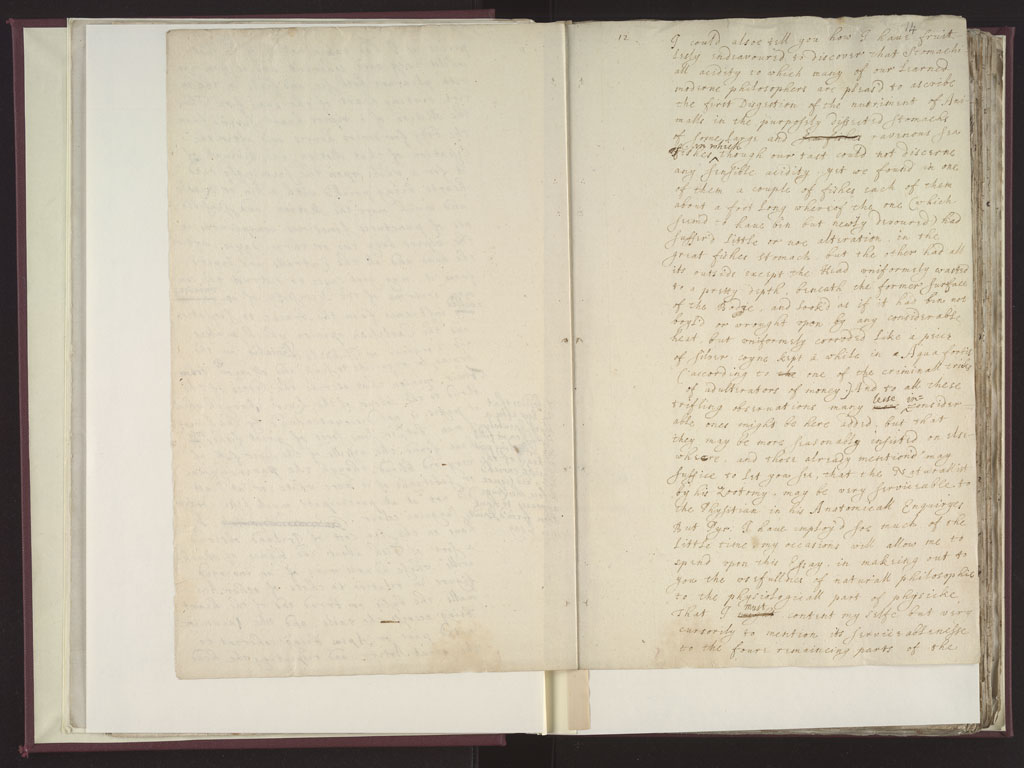 14
12
I could alsoe tell you how I have fruit
lesly indeavoured to discover that Stomachi
all acidity to which many of our Learned
moderne philosophers are pleas'd to ascribe
the first Disgestion of the nutriment of Ani
malls in the purposely dissected Stomachs
of some Large and ravenous sea
fishes, in which though our tast could not discerne
any sensible acidity yet we found in one
of them a couple of fishes each of them
about a foot Long whereof the one (which
seem'd to have bin but newly devoured) had
suffer'd Little or noe alteration in the
great fishes stomach but the other had all
its outside except the Head uniformely wasted
to a pretty depth, beneath the former surface
of the Bodye, and look'd as if it has bin not
boyl'd or wrought upon by any considerable
heat, but uniformely corroded Like a piece
of silver coyne kept a while in Aqua fortis
(according to one of the criminall tricks
of adulterators of money) And to all these
trifling observations many lesse in=
consider
able ones might be here added, but that
they may be more seasonably insisted on else
where, and those already mention'd may
suffice to Let you see, that the Naturallist
by his Zootomy, may be very serviceable to
the Physitian in his Anatomicall Enquiryes
But Pyr. I have employ'd soe much of the
Little time my occasions will allow me to
spend upon this Essay, in making out to
you the usefullnes of naturall philosophie
to the physiologicall part of physicke
that I must content my selfe but very
cursorily to mention its serviceablenesse
to the foure remaineing parts of the